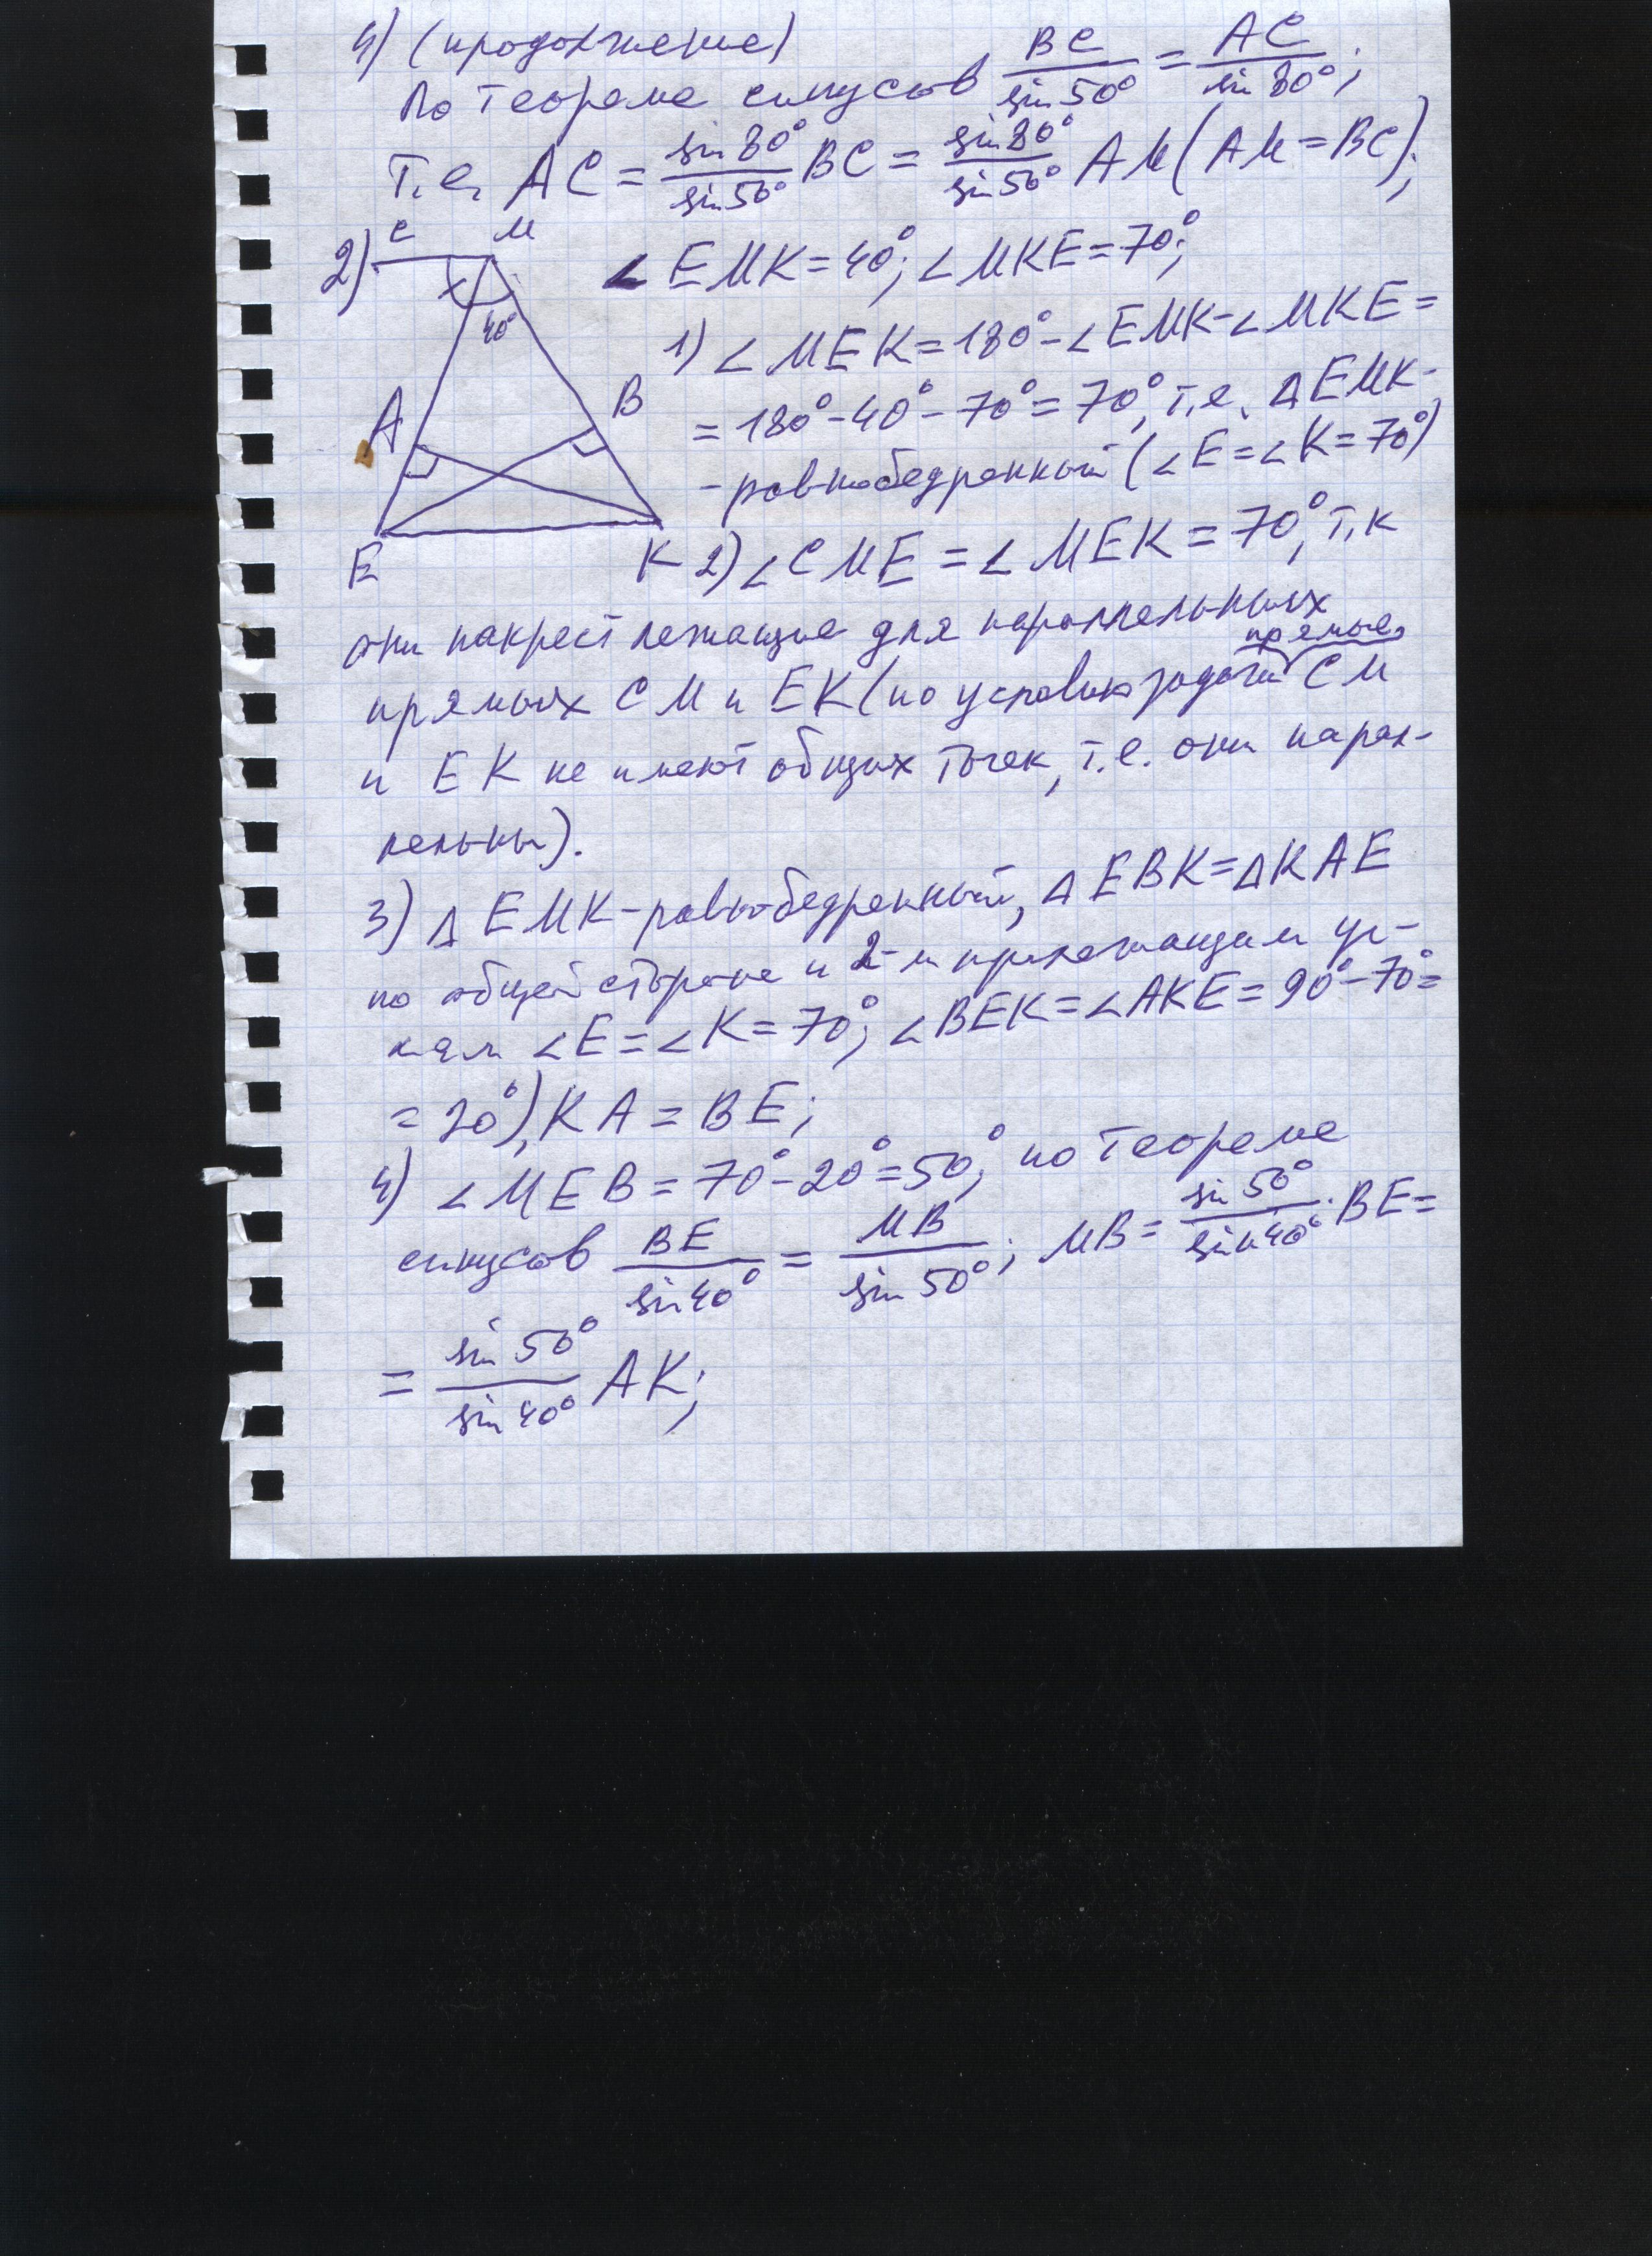 4) (продолжение)
По теореме синусов BC/sin 50° = AC/sin 80°;
т.е. AC = sin 80°/sin 50° BC = sin 80°/sin 50° AM (AM = BC);
2) C M 40° A B E K
∠EMK = 40°; ∠MKE = 70°;
1) ∠MEK = 180° - ∠EMK - ∠MKE =
= 180° - 40° - 70° = 70°, т.е. ΔEMK -
- равнобедренный (∠E = ∠K = 70°)
2) ∠CME = ∠MEK = 70°, т.к
они накрест лежащие для параллельных
прямых CM и EK (по условию задачи прямые CM
и EK не имеют общих точек, т.е. они парал-
лельны).
3) ΔEMK - равнобедренный, ΔEBK = ΔKAE
по общей стороне и 2-м прилежащим уг-
лам ∠E = ∠K = 70°; ∠BEK = ∠AKE = 90° - 70° =
= 20°), KA = BE;
4) ∠MEB = 70° - 20° = 50°; по теореме
синусов BE/sin 40° = MB/sin 50°; MB = sin 50°/sin 40° · BE =
= sin 50°/sin 40° AK;